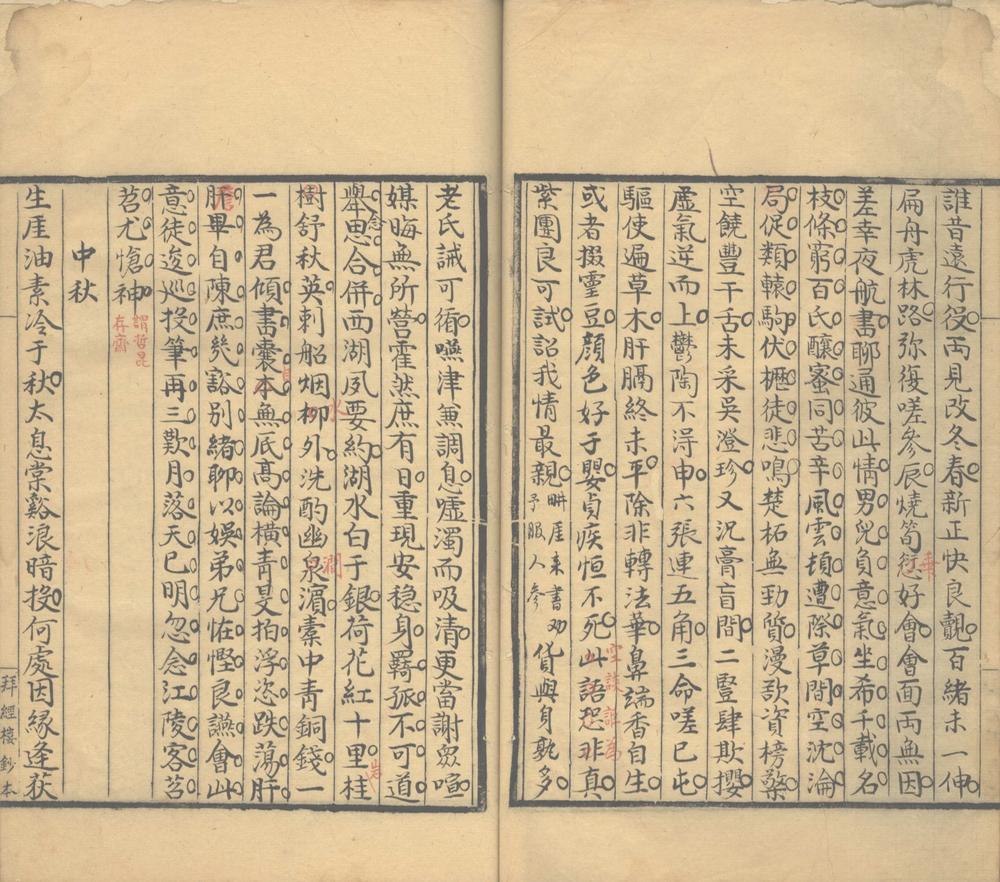 誰昔遠行役両見改冬春新正快良覿百緒未一伸
扁舟虎林路弥復嗟參辰燒筍愆好會會面両無因
差幸夜航書聊通彼此情男兒負意氣坐希千載名
枝條窮百氏釀蜜同苦辛風雲頓遭際草間空沈淪
局促類轅駒伏櫪徒悲鳴楚柘無勁質漫欷資榜檠
空饒豐干舌未采吳澄珍又況膏盲間二豎肆欺攖
虛氣逆而上鬱陶不得申六張連五角三命嗟已屯
驅使遍草木肝膈終未平除非轉法華鼻端香自生
或者掇靈豆顏色好于嬰貞疾恒不死此語恐非真
紫團良可試詔我情最親畊厓来書劝予服人參貨與身孰多
老氏誡可循嚥津兼調息噓濁而吸清更當謝衆喧
媒晦無所營霍然庶有日重現安穩身羇孤不可道
舉念思合併西湖夙要約湖水白于銀荷花紅十里桂
樹舒秋英刺船烟柳外洗酌幽泉濵素中青銅錢一
一為君傾書囊本無底髙論橫青旻拍浮恣跌蕩肝
肝畢自陳庶幾豁別緒聊以娛弟兄恠慳良讌會此
意徒逡巡投筆再三歎月落天已明忽念江陵客苕
苕尤愴神
謂哲昆
存齋
中秋
生厓油素冷于秋太息棠谿浪暗投何處因緣逢荻
拜經樓鈔本